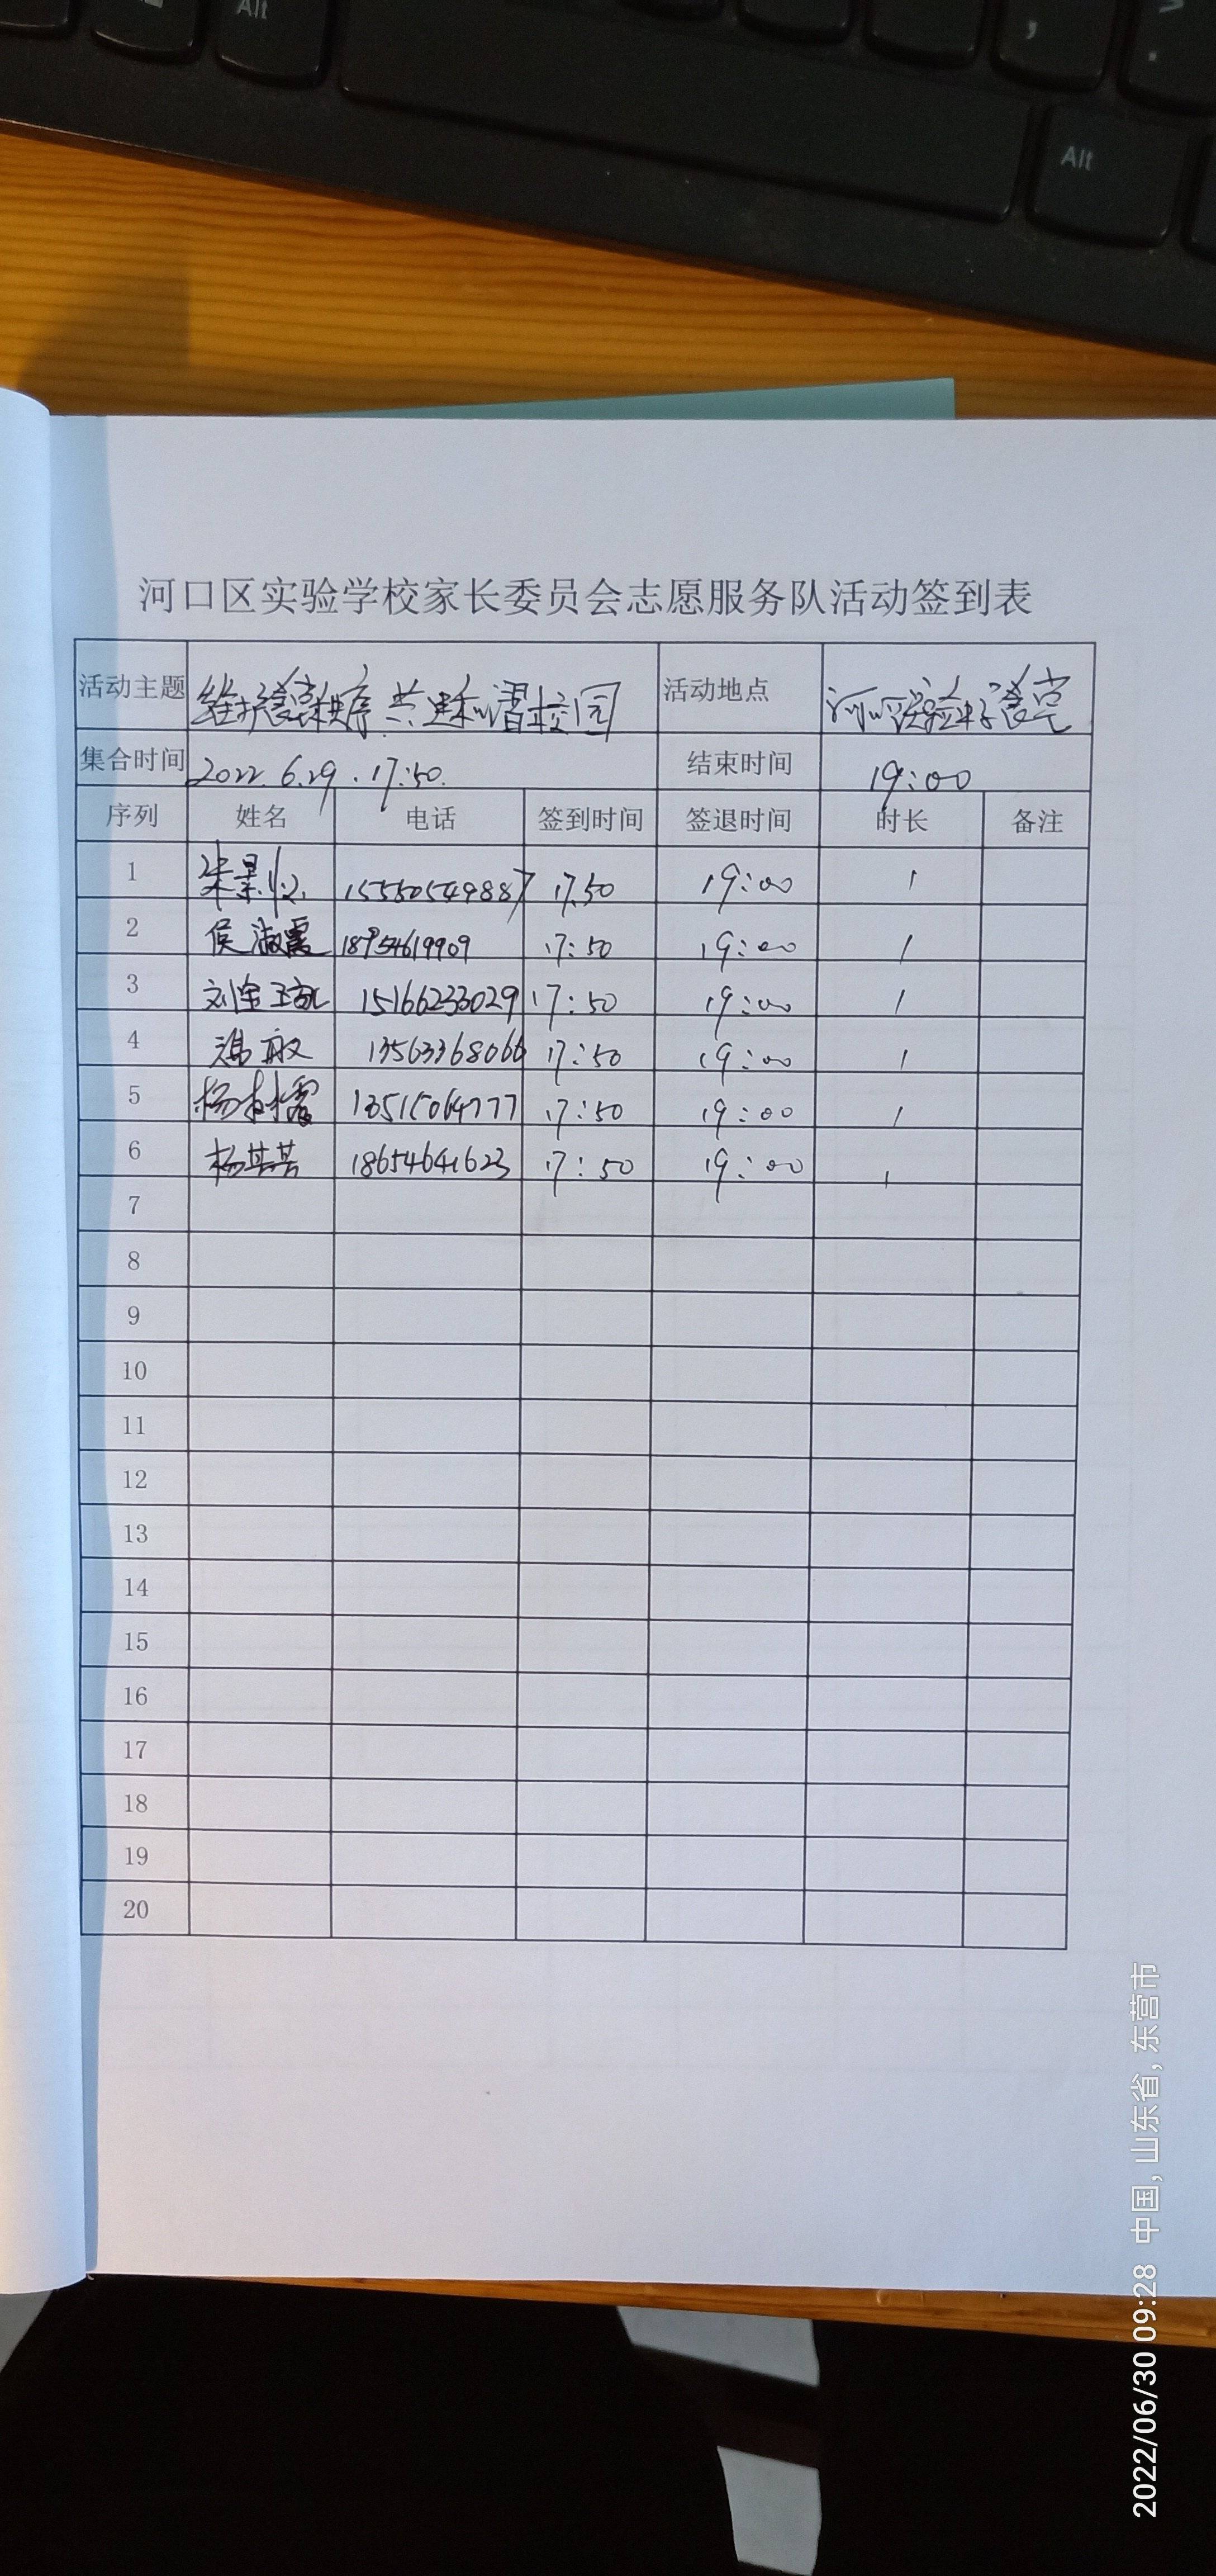 Alt
Alt
河口区实验学校家长委员会志愿服务队活动签到表
活动主题 维护餐饮秩序 共建和谐校园 活动地点 河口实验学校餐厅
集合时间 2022.6.29.17:50. 结束时间 19:00
序列 姓名 电话 签到时间 签退时间 时长 备注
1 15550549887 17:50 19:00 1
2 侯淑霞 18954619909 17:50 19:00 1
3 刘金 15166233029 17:50 19:00 1
4 冯敏 13563368066 17:50 19:00 1
5 杨树霞 13515064777 17:50 19:00 1
6 杨其芸 18654641623 17:50 19:00 1
7
8
9
10
11
12
13
14
15
16
17
18
19
20
2022/06/30 09:28 中国, 山东省, 东营市